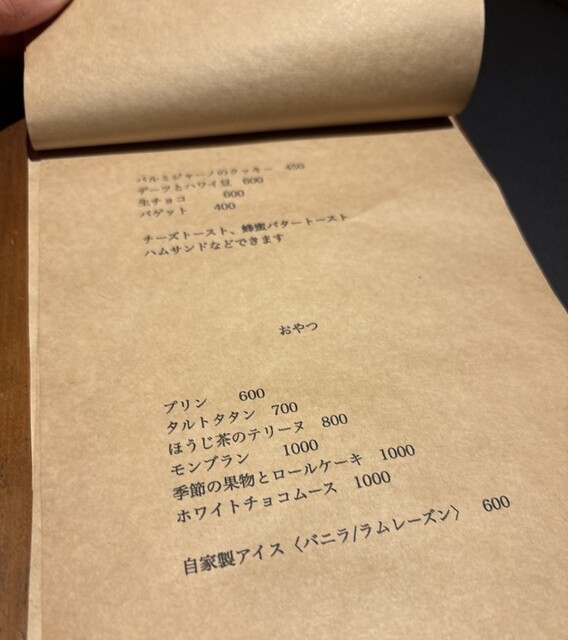 パルミジャーノのクッキー 450
デーツとハワイ豆 600
生チョコ 600
バゲット 400
チーズトースト、蜂蜜バタートースト
ハムサンドなどできます
おやつ
プリン 600
タルトタタン 700
ほうじ茶のテリーヌ 800
モンブラン 1000
季節の果物とロールケーキ 1000
ホワイトチョコムース 1000
自家製アイス〈バニラ/ラムレーズン〉 600